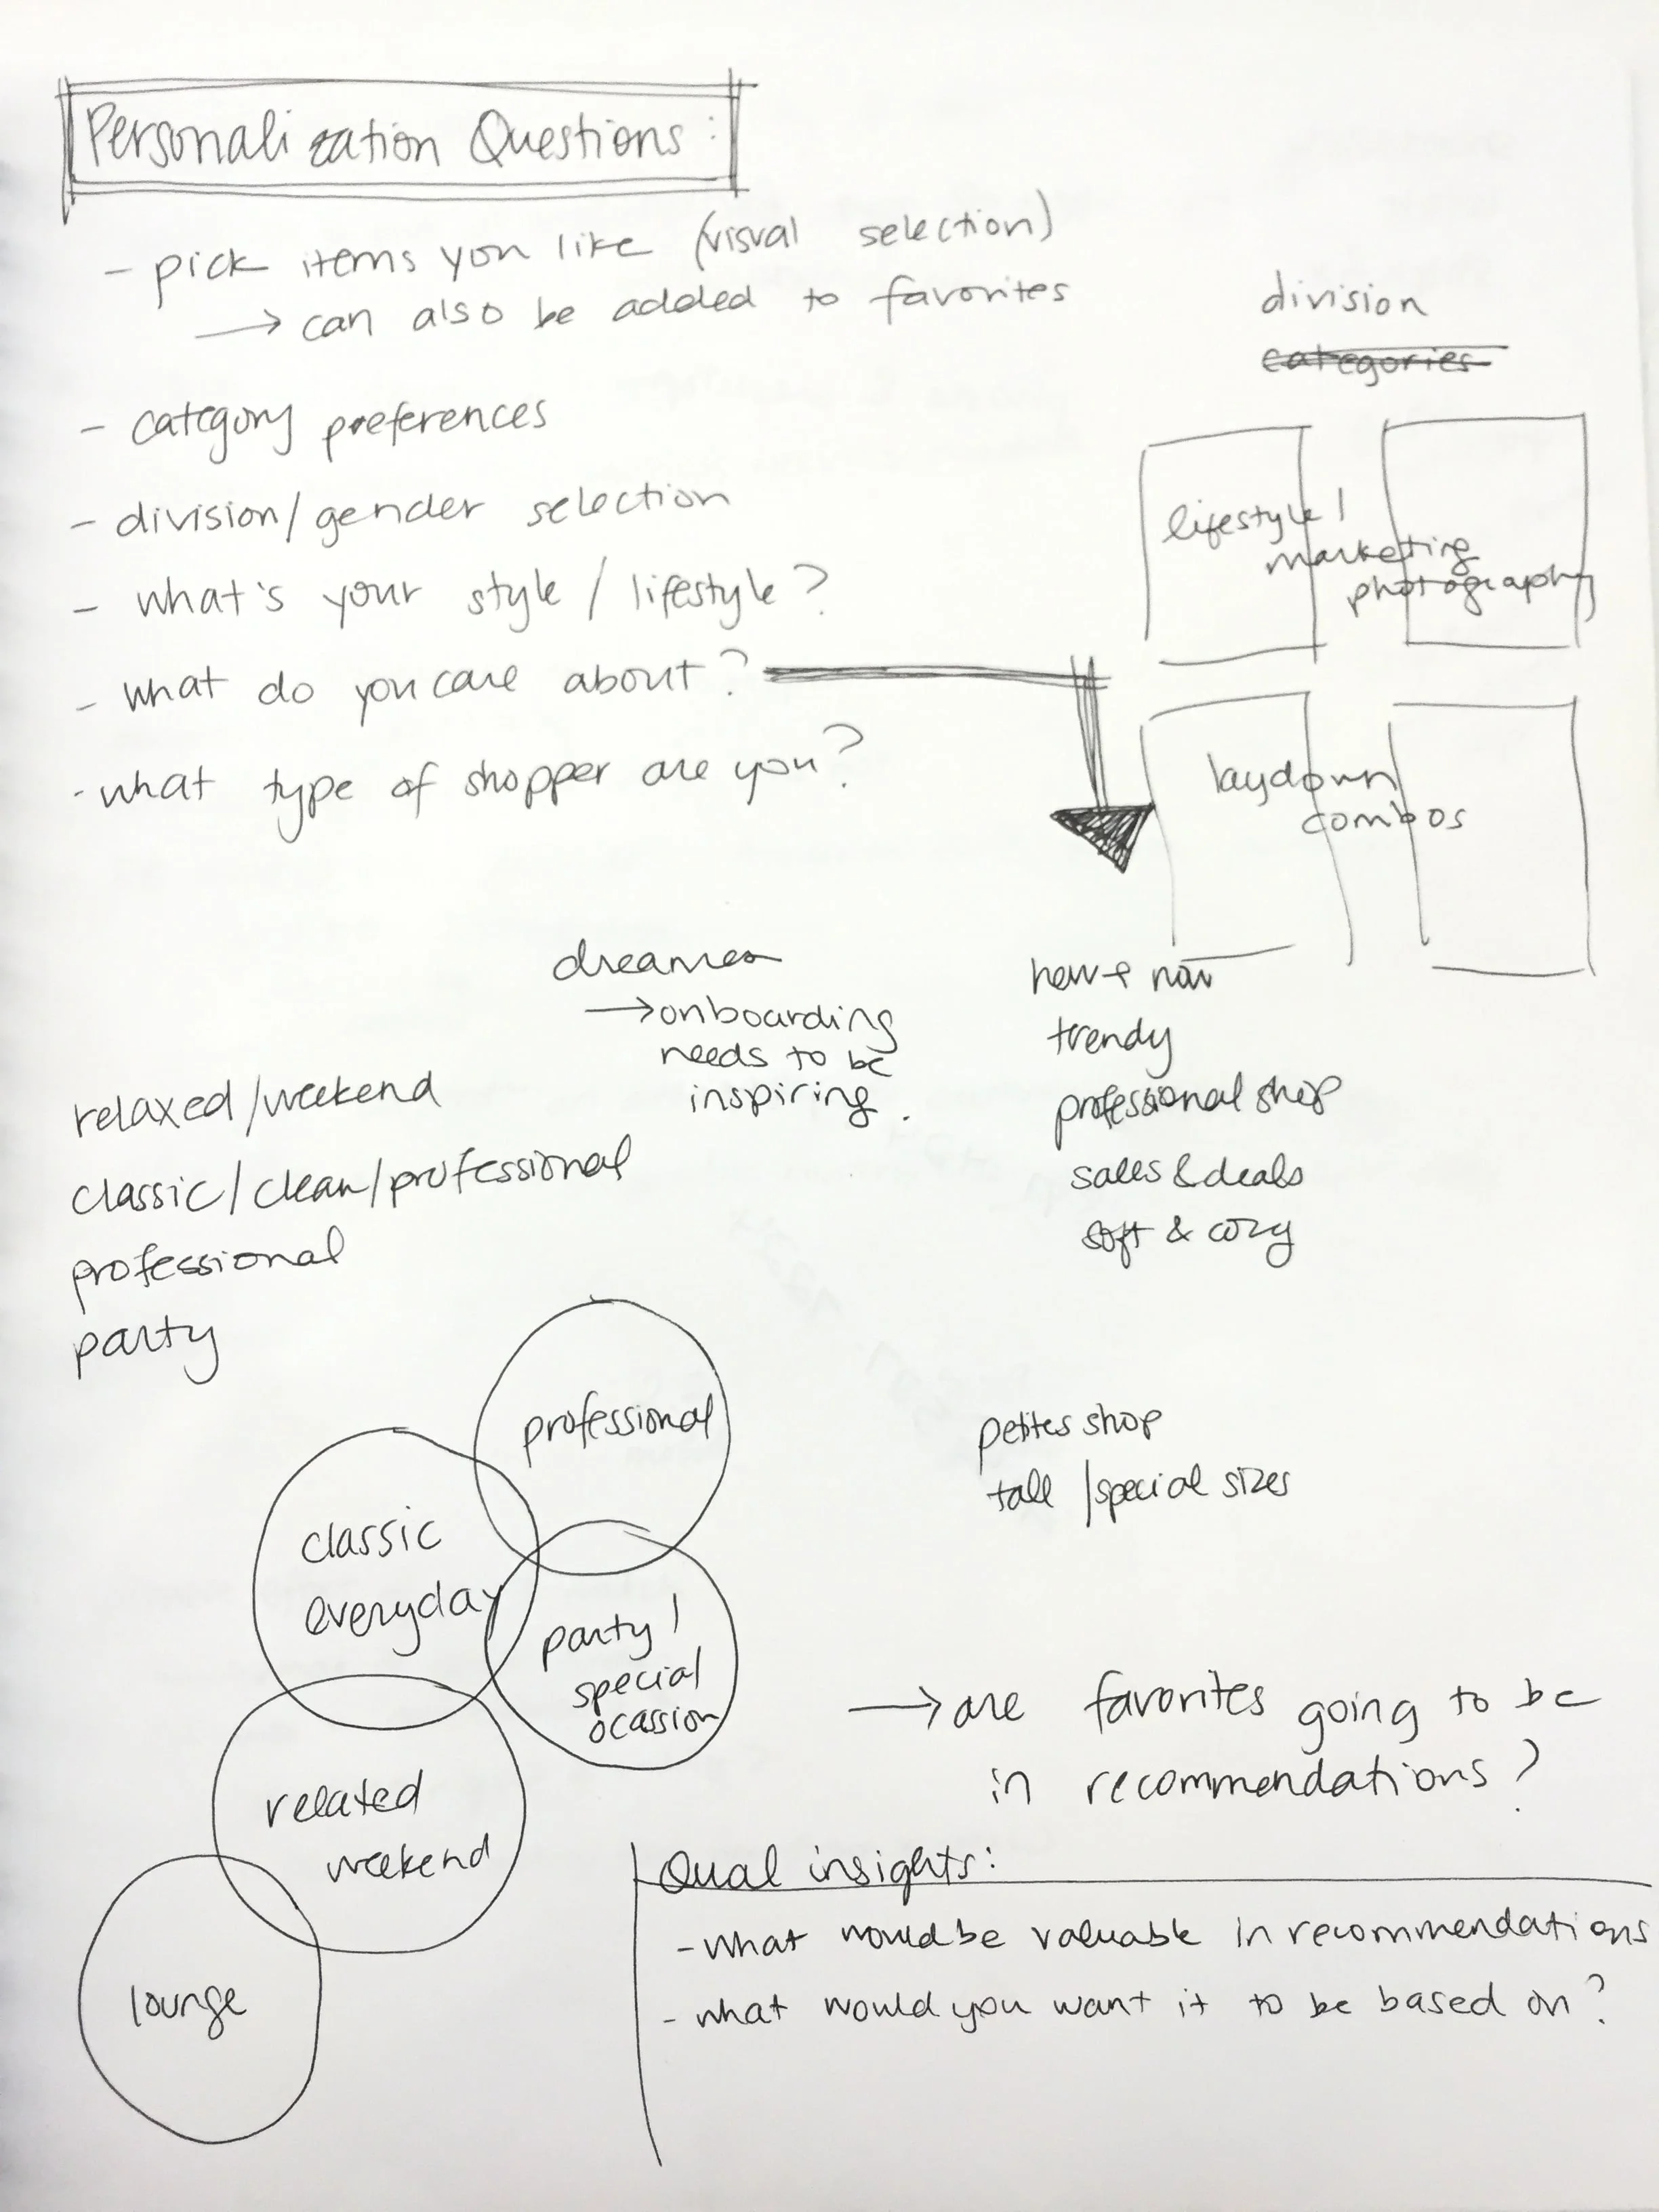 Personalization Questions:
- pick items you like (visual selection)
→ can also be added to favorites
- category preferences
- division/gender selection
- what's your style / lifestyle?
- what do you care about?
- what type of shopper are you?
division
categories
lifestyle /
marketing
photography
laydown
combos
dreamer
→ onboarding
needs to be
inspiring.
new + now
trendy
professional shop
sales & deals
soft & cozy
relaxed/weekend
classic/clean/professional
professional
party
professional
classic
everyday
party /
special
ocassion
related
weekend
lounge
petites shop
tall /special sizes
→ are favorites going to be
in recommendations?
Qual insights:
- what would be valuable in recommendations
- what would you want it to be based on?